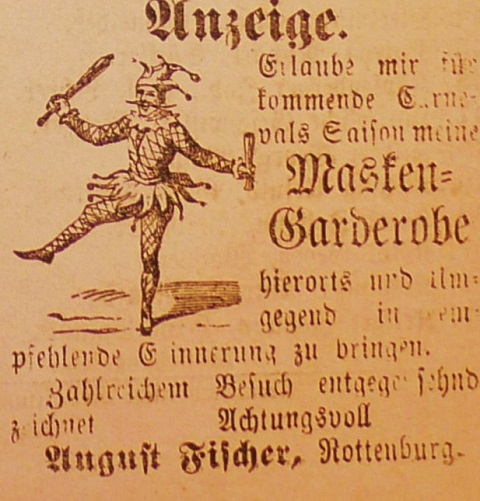 Anzeige.
Erlaube mir für
kommende Carne-
vals Saison meine
Masken-
Garderobe
hierorts und Um-
gegend in em-
pfehlende Erinnerung zu bringen.
Zahlreichem Besuch entgegensehnd
zeichnet Achtungsvoll
August Fischer, Rottenburg.